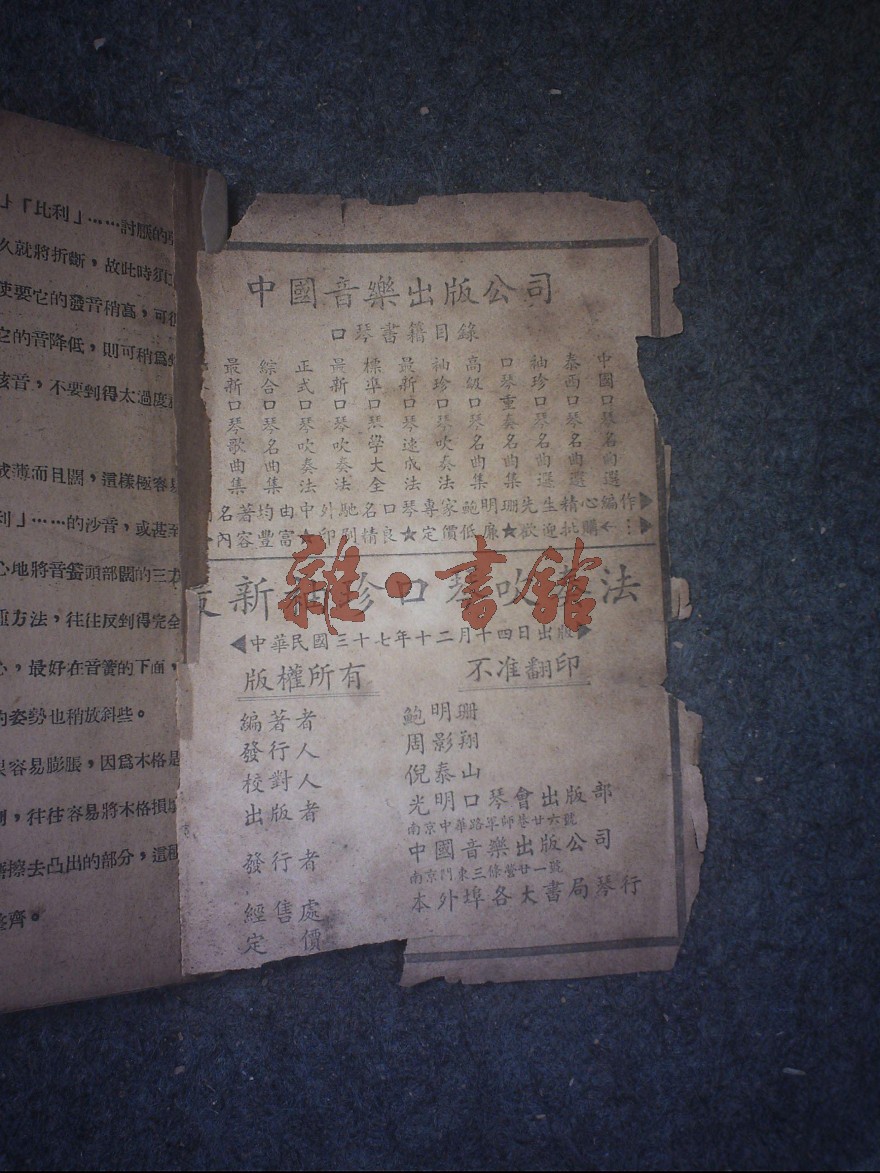 」「比利」……討厭的
久就將折斷，故此時須
使要它的發音稍高，可
它的音降低，則可稍爲
該音，不要到得太過度
或薄而且闊，這樣極容易
利」……的沙音，或甚至
心地將音簧頭部闊的三
方法，往往反到得完全
心，最好在音簧的下面，
的姿勢也稍放斜些。
容易膨脹，因爲木格是
，往往容易將木格損
擦去凸出的部分，這
齊。
中國音樂出版公司
口琴書籍目錄
中國口琴名曲選
泰西口琴名曲選
袖珍口琴名曲選
口琴重奏名曲集
高級口琴名曲集
袖珍口琴吹奏法
最新口琴速成法
標準口琴學大全
最新口琴吹奏法
正式口琴吹奏法
綜合口琴名曲集
最新口琴歌曲集
名著均由中外馳名口琴專家鮑明珊先生精心編作▶
內容豐富★印刷精良★定價低廉★歡迎批購←…▶
新袖珍口琴吹奏法
◀中華民國三十七年十二月十四日出版▶
版權所有 不准翻印
編著者 鮑明珊
發行人 周影翔
校對人 倪泰山
出版者 光明口琴會出版部
南京中華路軍師巷廿六號
發行者 中國音樂出版公司
南京門東三條營廿一號
經售處 本外埠各大書局琴行
定價
雜·書館